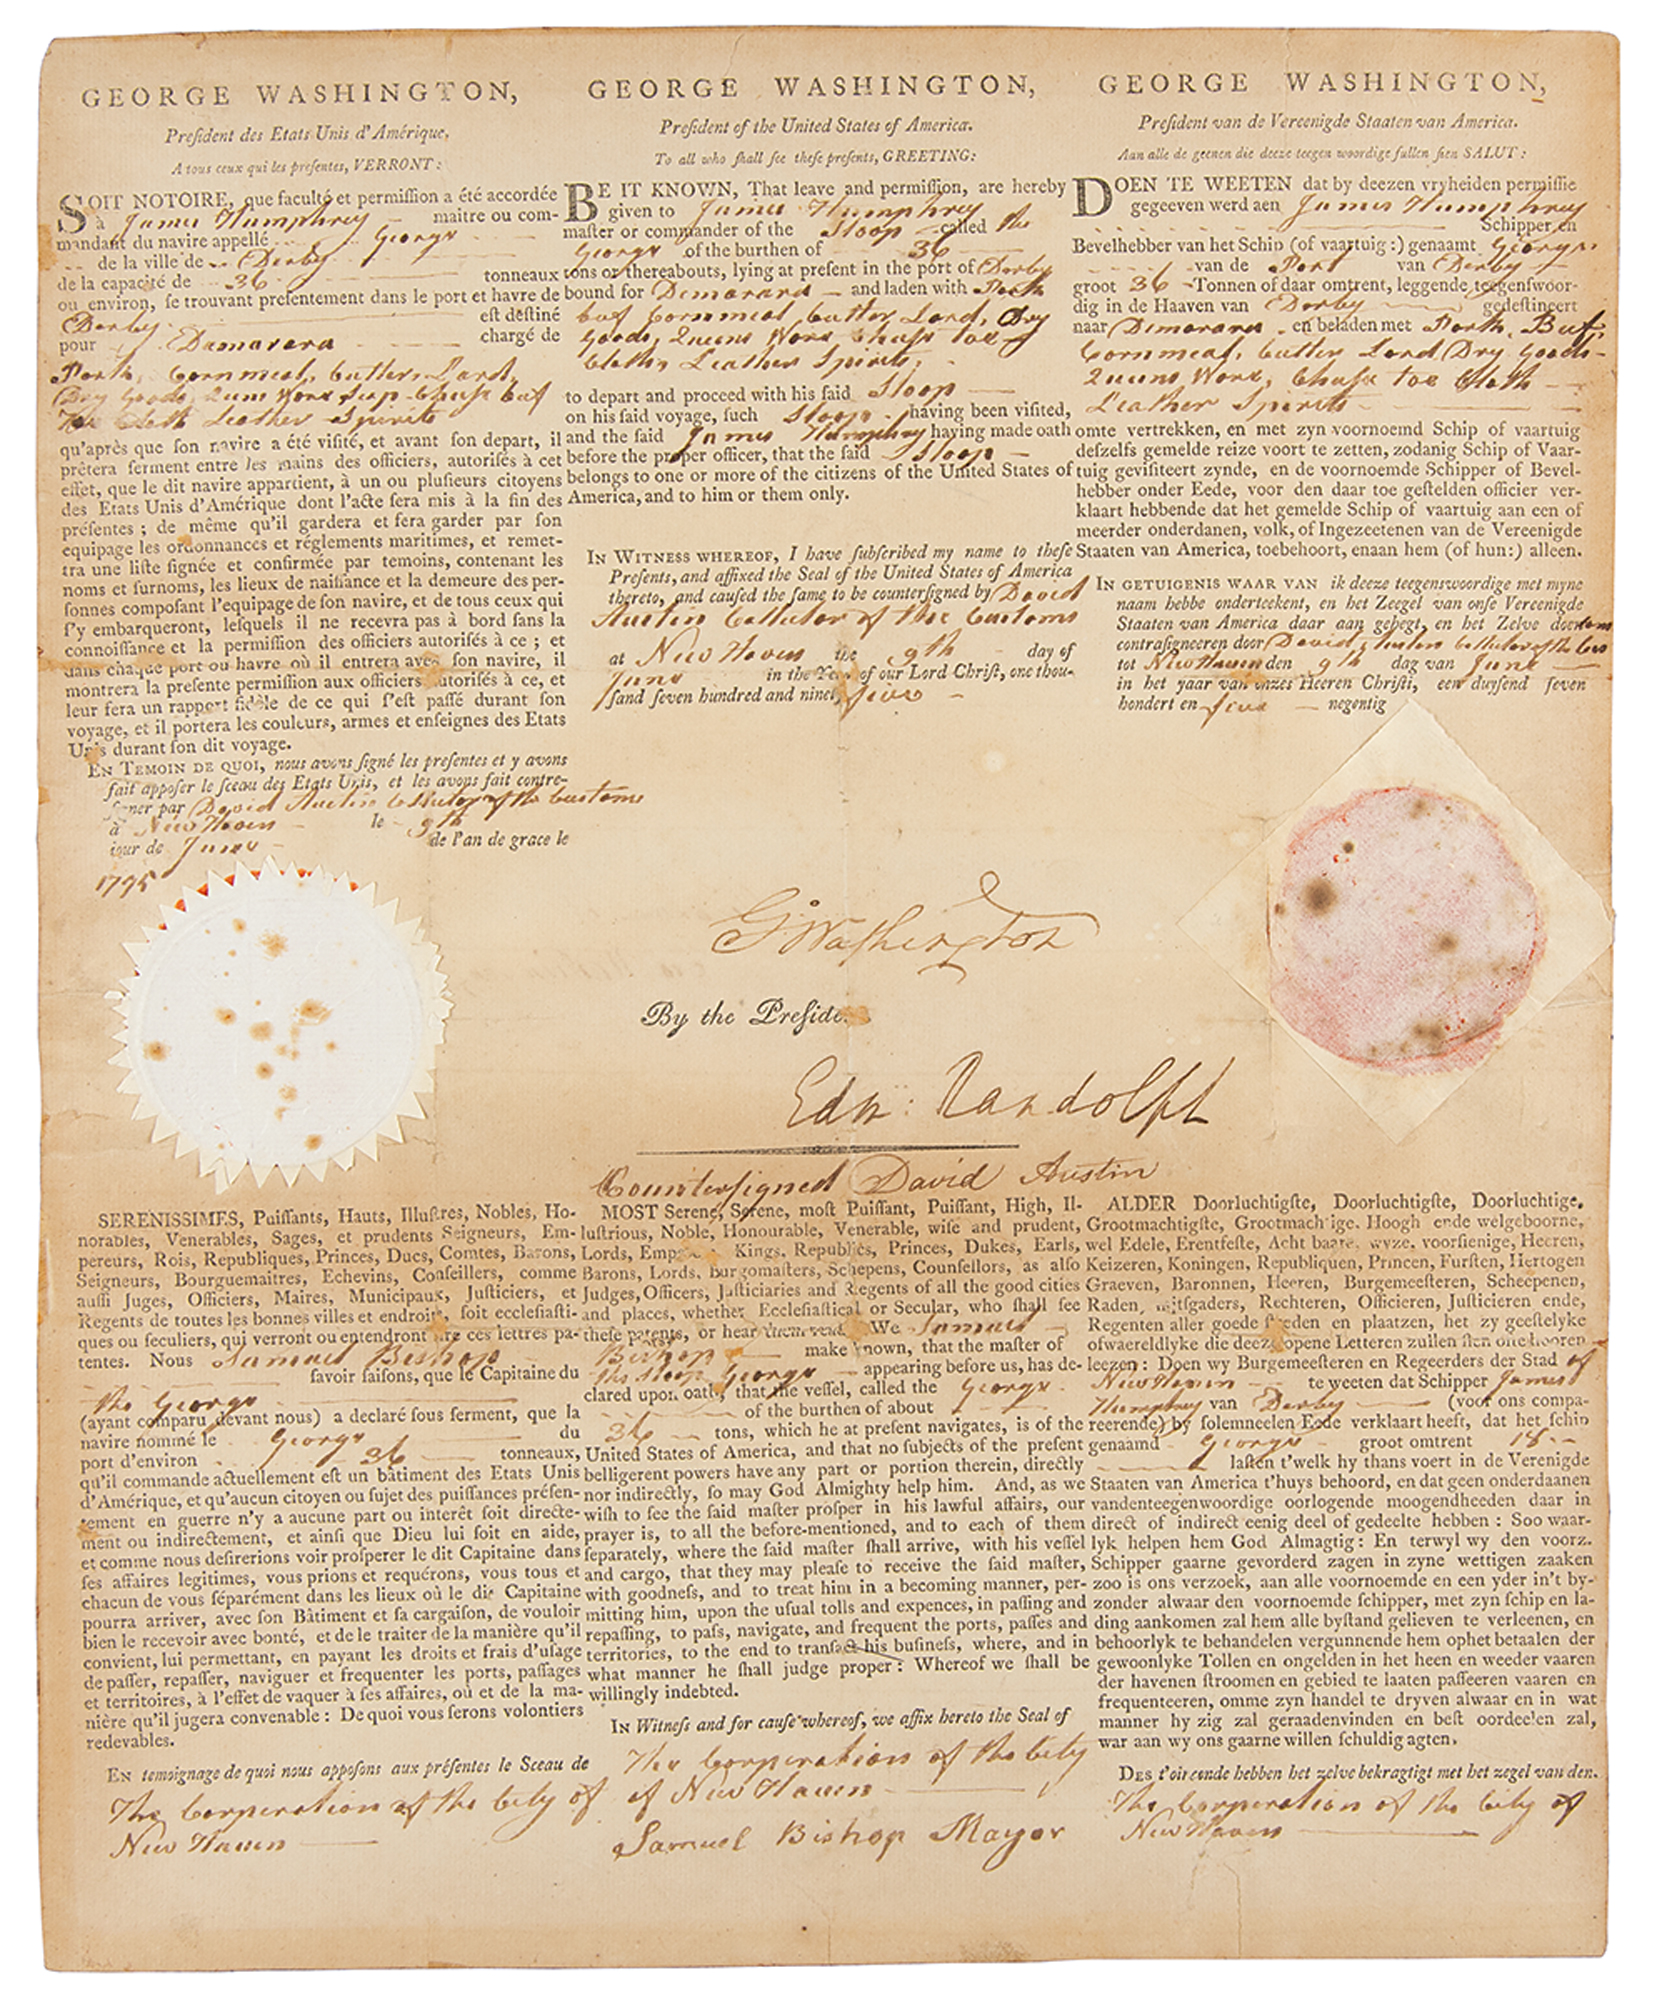 GEORGE WASHINGTON,
Preſident des Etats Unis d'Amérique,
A tous ceux qui les preſentes, VERRONT:
SOIT NOTOIRE, que faculté et permiſſion a été accordée
à James Humphrey maitre ou com-
mandant du navire appellé George
de la ville de Derby
de la capacité de 36 tonneaux
ou environ, ſe trouvant preſentement dans le port et havre de
Derby est deſtiné
pour Damarara chargé de
Pork, Cornmeal, butter, Lard,
Dry Goods, Chaſe beef
Cloth Leather Spirits
qu'après que ſon navire a été viſité, et avant ſon depart, il
prêtera ferment entre les mains des officiers, autoriſés à cet
effet, que le dit navire appartient, à un ou pluſieurs citoyens
des Etats Unis d'Amérique dont l'acte ſera mis à la fin des
préſentes; de même qu'il gardera et fera garder par ſon
equipage les ordonnances et réglements maritimes, et remet-
tra une liſte ſignée et confirmée par temoins, contenant les
noms et ſurnoms, les lieux de naiſſance et la demeure des per-
ſonnes compoſant l'equipage de ſon navire, et de tous ceux qui
ſ'y embarqueront, leſquels il ne recevra pas à bord ſans la
connoiſſance et la permiſſion des officiers autoriſés à ce; et
dans chaque port ou havre où il entrera avec ſon navire, il
montrera la preſente permiſſion aux officiers autoriſés à ce, et
leur fera un rapport fidèle de ce qui ſ'eſt paſſé durant ſon
voyage, et il portera les couleurs, armes et enſeignes des Etats
Unis durant ſon dit voyage.
EN TEMOIN DE QUOI, nous avons ſigné les preſentes et y avons
fait appoſer le ſceau des Etats Unis, et les avons fait contre-
ſigner par David Austin Collector of the Customs
à New Haven le 9th
jour de June de l'an de grace le
1795
GEORGE WASHINGTON,
Preſident of the United States of America.
To all who ſhall ſee theſe preſents, GREETING:
BE IT KNOWN, That leave and permiſſion, are hereby
given to James Humphrey
maſter or commander of the Sloop called the
George of the burthen of 36
tons or thereabouts, lying at preſent in the port of Derby
bound for Demarara and laden with Pork
beef Cornmeal, butter Lard, Dry
Goods, Queens Ware Chaſe toe
Cloth Leather Spirits,
to depart and proceed with his ſaid Sloop
on his ſaid voyage, ſuch Sloop having been viſited,
and the ſaid James Humphrey having made oath
before the proper officer, that the ſaid Sloop
belongs to one or more of the citizens of the United States of
America, and to him or them only.
IN WITNESS WHEREOF, I have ſubſcribed my name to theſe
Preſents, and affixed the Seal of the United States of America
thereto, and cauſed the ſame to be counterſigned by David
Austin Collector of the Customs
at New Haven the 9th day of
June in the Year of our Lord Chriſt, one thou-
ſand ſeven hundred and ninety five
GEORGE WASHINGTON,
Preſident van de Vereenigde Staaten van America.
Aan alle de geenen die deeze teegen woordige ſullen ſien SALUT:
DOEN TE WEETEN dat by deezen vryheiden permiſſie
gegeeven werd aen James Humphrey
Schipper en
Bevelhebber van het Schip (of vaartuig:) genaamt George
van de Port van Derby
groot 36 Tonnen of daar omtrent, leggende teegenſwoor-
dig in de Haaven van Derby gedeſtineert
naar Dimarara en beladen met Pork, Beef,
Cornmeal, butter Lard Dry Goods
Queens Ware, Chaſe toe Cloth
Leather Spirits
omte vertrekken, en met zyn voornoemd Schip of vaartuig
deſzelfs gemelde reize voort te zetten, zodanig Schip of Vaar-
tuig geviſiteert zynde, en de voornoemde Schipper of Bevel-
hebber onder Eede, voor den daar toe geſtelden officier ver-
klaart hebbende dat het gemelde Schip of vaartuig aan een of
meerder onderdanen, volk, of Ingezeetenen van de Vereenigde
Staaten van America, toebehoort, enaan hem (of hun:) alleen.
IN GETUIGENIS WAAR VAN ik deeze teegenswoordige met myne
naam hebbe onderteekent, en het Zeegel van onſe Vereenigde
Staaten van America daar aan gehegt, en het Zelve doen
contraſigneeren door David Austin Collector of the Customs
tot New Haven den 9th dag van June
in het yaar van onzes Heeren Chriſti, een duyſend ſeven
hondert en five negentig
G Washington
By the Preſide
Edm: Randolph
Counterſigned David Austin
SERENISSIMES, Puiſſants, Hauts, Illuſtres, Nobles, Ho-
norables, Venerables, Sages, et prudents Seigneurs, Em-
pereurs, Rois, Republiques, Princes, Ducs, Comtes, Barons,
Seigneurs, Bourguemaitres, Echevins, Conſeillers, comme
auſſi Juges, Officiers, Maires, Municipaux, Juſticiers, et
Regents de toutes les bonnes villes et endroits, ſoit eccleſiaſti-
ques ou ſeculiers, qui verront ou entendront lire ces lettres pa-
tentes. Nous Samuel Bishop
ſavoir faiſons, que le Capitaine du
the George
(ayant comparu devant nous) a declaré ſous ſerment, que la
navire nommé le George du
port d'environ 36 tonneaux,
qu'il commande actuellement eſt un bâtiment des Etats Unis
d'Amérique, et qu'aucun citoyen ou ſujet des puiſſances préſen-
tement en guerre n'y a aucune part ou interêt ſoit directe-
ment ou indirectement, et ainſi que Dieu lui ſoit en aide,
et comme nous deſirerions voir proſperer le dit Capitaine dans
ſes affaires legitimes, vous prions et requérons, vous tous et
chacun de vous ſéparément dans les lieux où le dit Capitaine
pourra arriver, avec ſon Bâtiment et ſa cargaiſon, de vouloir
bien le recevoir avec bonté, et de le traiter de la manière qu'il
convient, lui permettant, en payant les droits et frais d'uſage
de paſſer, repaſſer, naviguer et frequenter les ports, paſſages
et territoires, à l'effet de vaquer à ſes affaires, où et de la ma-
nière qu'il jugera convenable: De quoi vous ſerons volontiers
redevables.
EN temoignage de quoi nous appoſons aux préſentes le Sceau de
The Corporation of the City of
New Haven
MOST Serene, Serene, moſt Puiſſant, Puiſſant, High, Il-
luſtrious, Noble, Honourable, Venerable, wiſe and prudent,
Lords, Kings, Republics, Princes, Dukes, Earls,
Barons, Lords, Burgomaſters, Schepens, Counſellors, as alſo
Judges, Officers, Juſticiaries and Regents of all the good cities
and places, whether Eccleſiaſtical or Secular, who ſhall ſee
theſe patents, or hear them read. We Samuel
Bishop make known, that the maſter of
the Sloop George appearing before us, has de-
clared upon oath, that the veſſel, called the George
of the burthen of about
36 tons, which he at preſent navigates, is of the
United States of America, and that no ſubjects of the preſent
belligerent powers have any part or portion therein, directly
nor indirectly, ſo may God Almighty help him. And, as we
wiſh to ſee the ſaid maſter proſper in his lawful affairs, our
prayer is, to all the before-mentioned, and to each of them
ſeparately, where the ſaid maſter ſhall arrive, with his veſſel
and cargo, that they may pleaſe to receive the ſaid maſter,
with goodneſs, and to treat him in a becoming manner, per-
mitting him, upon the uſual tolls and expences, in paſſing and
repaſſing, to paſs, navigate, and frequent the ports, paſſes and
territories, to the end to tranſact his buſineſs, where, and in
what manner he ſhall judge proper: Whereof we ſhall be
willingly indebted.
IN Witneſs and for cauſe whereof, we affix hereto the Seal of
The Corporation of the City
of New Haven
Samuel Bishop Mayor
ALDER Doorluchtigſte, Doorluchtigſte, Doorluchtige,
Grootmachtigſte, Grootmachtige, Hoogh ende welgeboorne,
wel Edele, Erentfeſte, Acht baare, wyze, voorſienige, Heeren,
Keizeren, Koningen, Republiquen, Princen, Furſten, Hertogen
Graeven, Baronnen, Heeren, Burgemeeſteren, Scheepenen,
Raden, mitſgaders, Rechteren, Officieren, Juſticieren ende,
Regenten aller goede ſteden en plaatzen, het zy geeſtelyke
ofwaereldlyke die deeze opene Letteren zullen ſien ofte hooren
leezen: Doen wy Burgemeeſteren en Regeerders der Stad of
New Haven te weeten dat Schipper James
Humphrey van Derby (voor ons compa-
reerende) by ſolemneelen Eede verklaart heeft, dat het ſchip
genaamd George groot omtrent 18
laſten t'welk hy thans voert in de Verenigde
Staaten van America t'huys behoord, en dat geen onderdaanen
vandenteegenwoordige oorlogende moogendheeden daar in
direct of indirect eenig deel of gedeelte hebben: Soo waar-
lyk helpen hem God Almagtig: En terwyl wy den voorz.
Schipper gaarne gevorderd zagen in zyne wettigen zaaken
zoo is ons verzoek, aan alle voornoemde en een yder in't by-
zonder alwaar den voornoemde ſchipper, met zyn ſchip en la-
ding aankomen zal hem alle byſtand gelieven te verleenen, en
behoorlyk te behandelen vergunnende hem ophet betaalen der
gewoonlyke Tollen en ongelden in het heen en weeder vaaren
der havenen ſtroomen en gebied te laaten paſſeeren vaaren en
frequenteeren, omme zyn handel te dryven alwaar en in wat
manner hy zig zal geraadenvinden en beſt oordeelen zal,
war aan wy ons gaarne willen ſchuldig agten.
DES t'oirconde hebben het zelve bekragtigt met het zegel van den.
The Corporation of the City of
New Haven